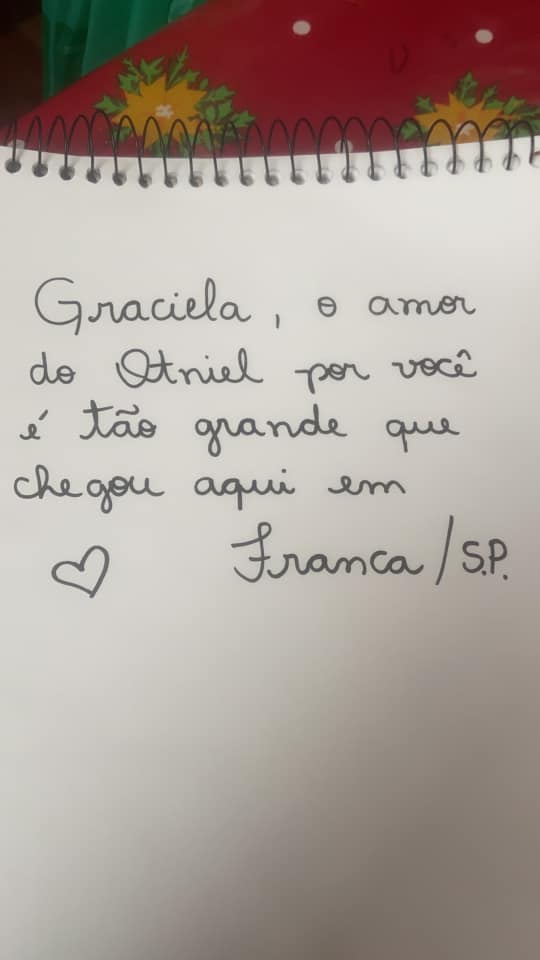 Graciela, o amor
do Otniel por você
é tão grande que
chegou aqui em
Franca/S.P.